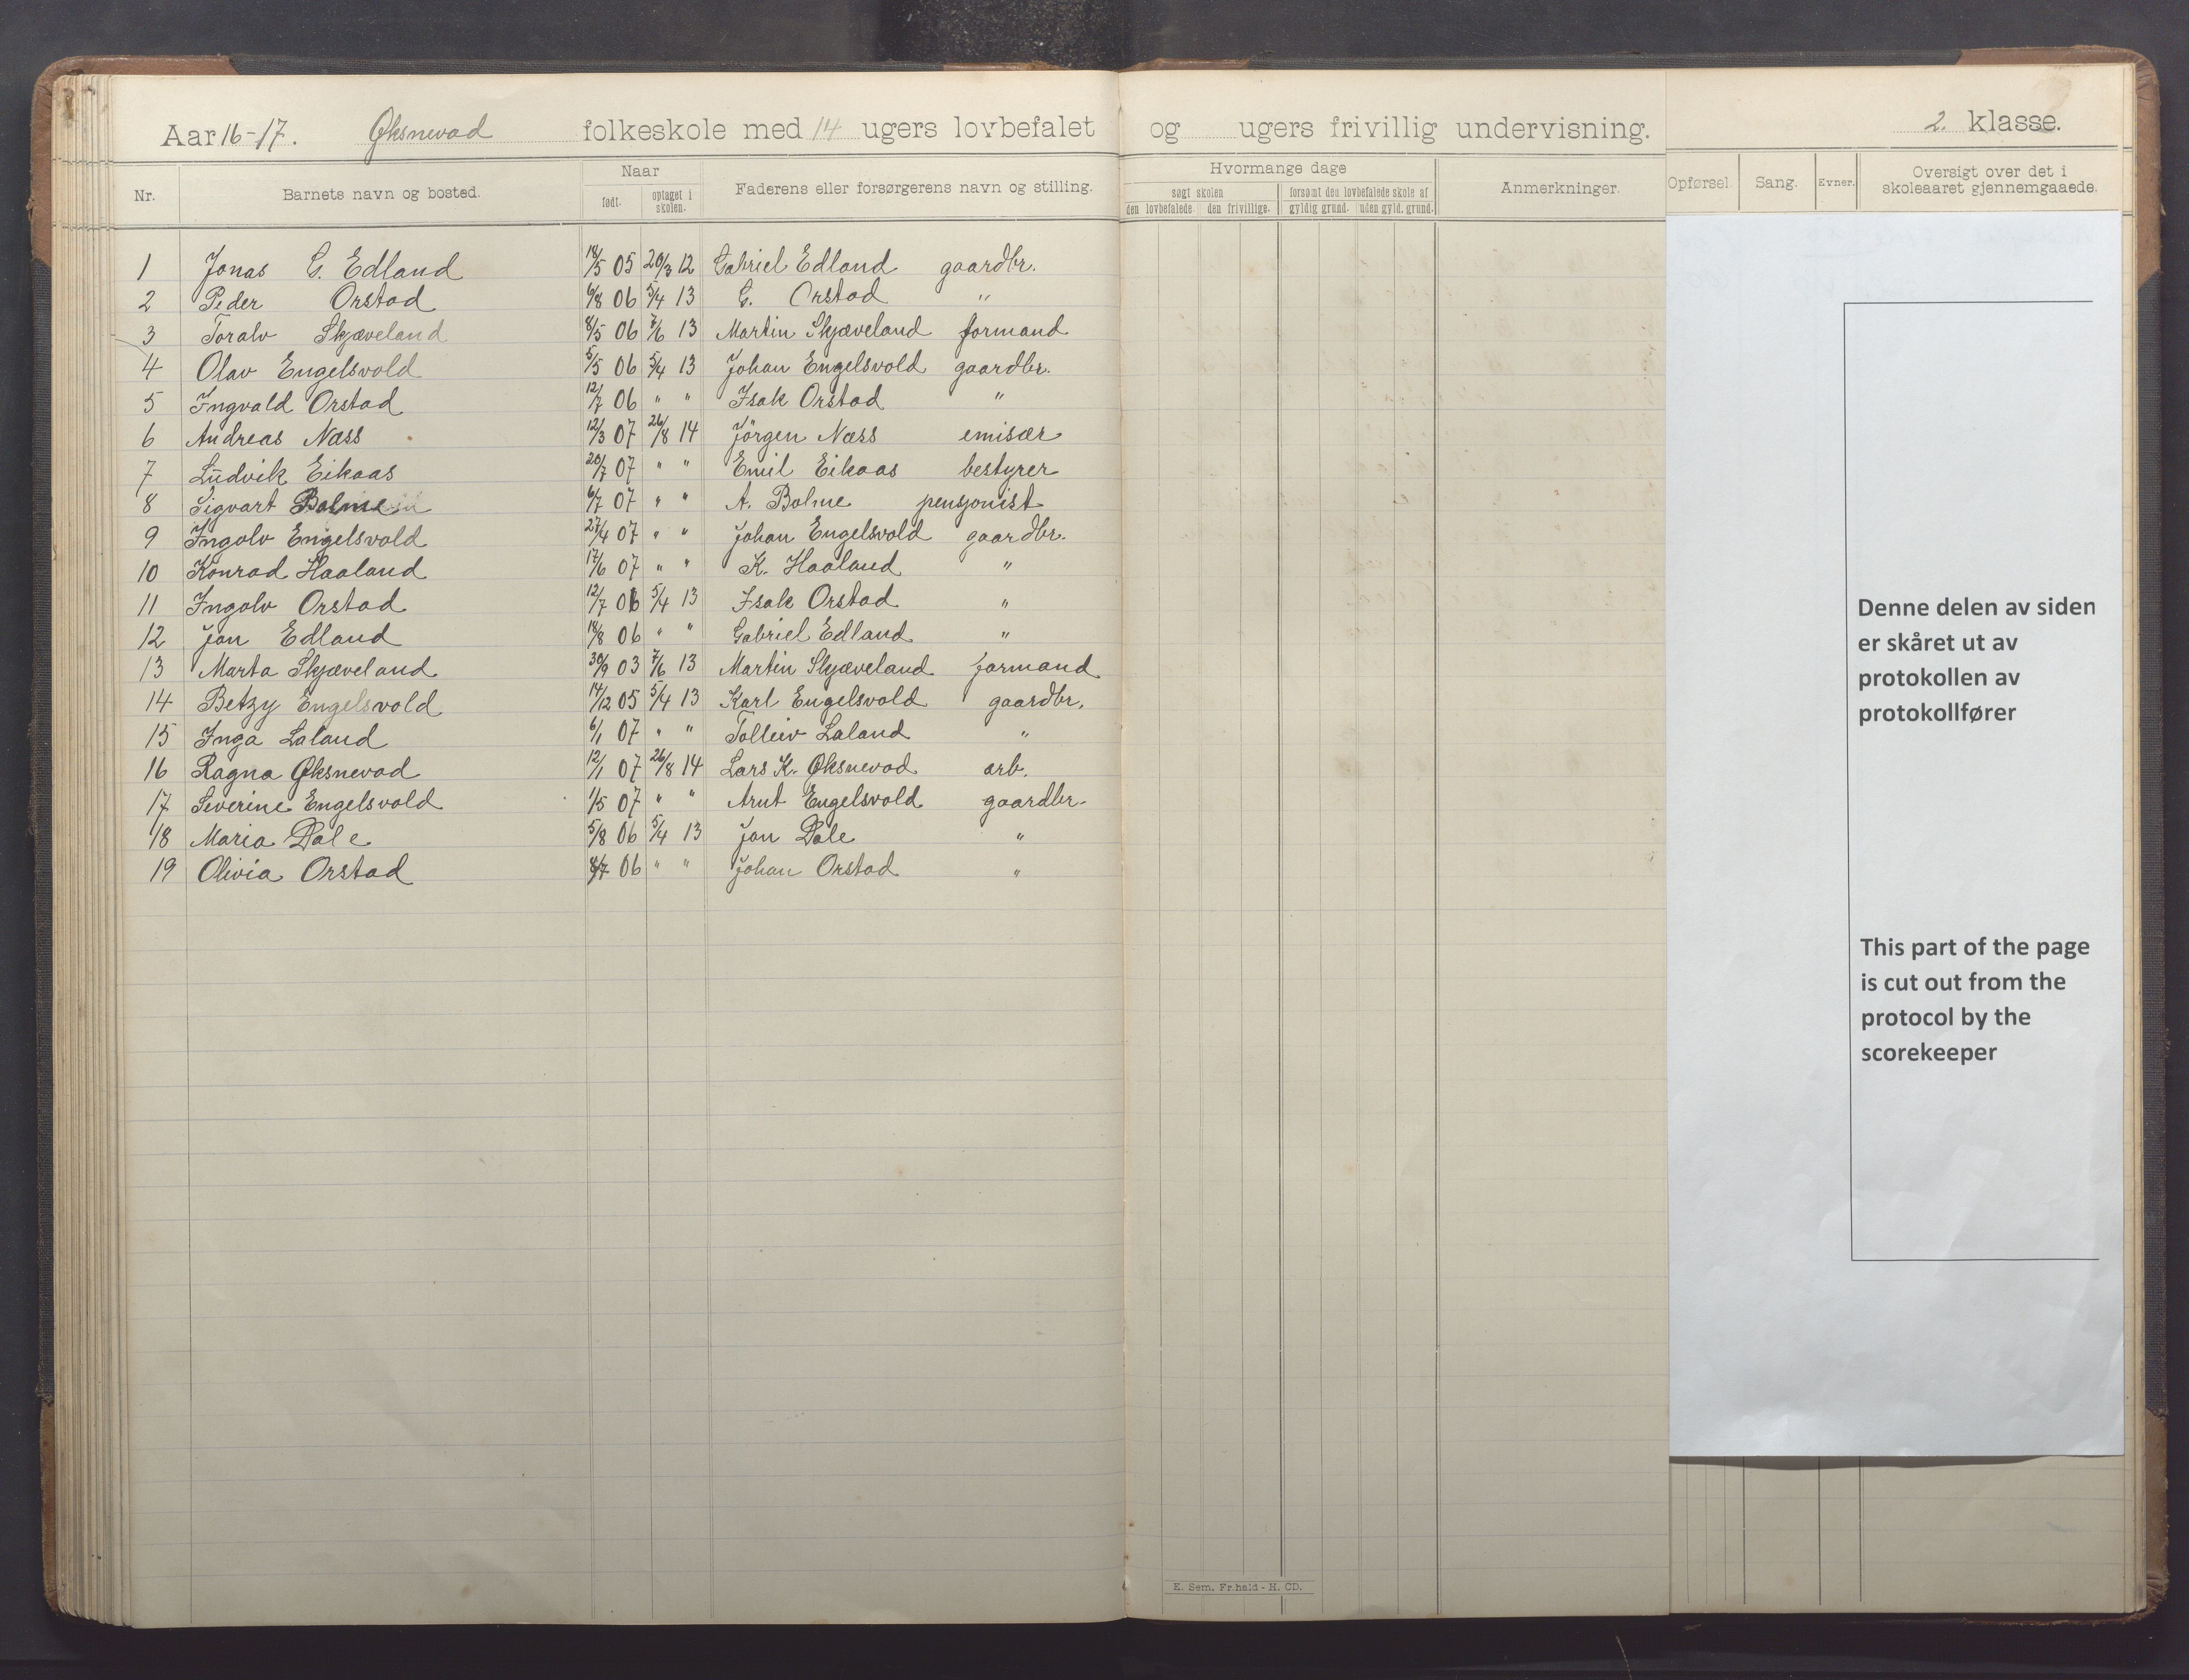 Aar 16-17. Øksnevad folkeskole med 14 ugers lovbefalet og ugers frivillig undervisning. 2. klasse.
Nr. Barnets navn og bosted. Naar født. optaget i skolen. Faderens eller forsørgerens navn og stilling. Hvormange dage søgt skolen den lovbefalede den frivillige. forsømt den lovbefalede skole af gyldig grund. uden gyld. grund. Anmerkninger. Opførsel. Sang. Evner. Oversigt over det i skoleaaret gjennemgaaede.
1 Jonas G. Edland 18/5 05 20/3 12 Gabriel Edland gaardbr.
2 Peder Orstad 6/8 06 5/4 13 G. Orstad "
3 Toralv Skjæveland 8/5 06 7/6 13 Martin Skjæveland formand
4 Olav Engelsvold 5/5 06 5/4 13 Johan Engelsvold gaardbr.
5 Ingvald Orstad 12/7 06 " " Isak Orstad "
6 Andreas Næss 12/3 07 26/8 14 Jörgen Næss emisær
7 Ludvik Eikaas 20/7 07 " " Emil Eikaas bestyrer
8 Sigvart Bolme 6/7 07 " " A. Bolme pensjonist
9 Ingolv Engelsvold 27/4 07 " " Johan Engelsvold gaardbr.
10 Konrad Haaland 17/6 07 " " K. Haaland "
11 Ingolv Orstad 12/7 06 5/4 13 Isak Orstad "
12 Jon Edland 18/8 06 " " Gabriel Edland "
13 Marta Skjæveland 30/9 03 7/6 13 Martin Skjæveland formand
14 Betzy Engelsvold 14/12 05 5/4 13 Karl Engelsvold gaardbr.
15 Inga Laland 6/1 07 " " Tolleiv Laland "
16 Ragna Øksnevad 12/1 07 26/8 14 Lars K. Øksnevad arb.
17 Severine Engelsvold 1/5 07 " " Arnt Engelsvold gaardbr.
18 Maria Dale 5/8 06 5/4 13 Jon Dale "
19 Olivia Orstad 8/7 06 " " Johan Orstad "
Denne delen av siden
er skåret ut av
protokollen av
protokollfører
This part of the page
is cut out from the
protocol by the
scorekeeper
E. Sem, Fr.hald - H. CD.